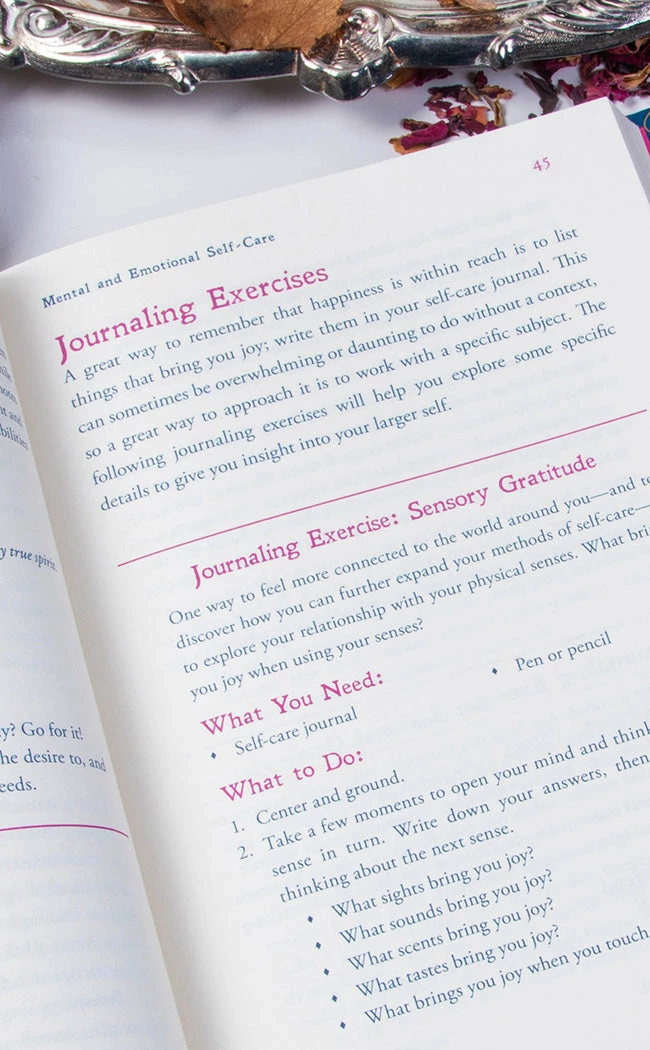 y true spirit.
y? Go for it!
he desire to, and
eeds.
45
Mental and Emotional Self-Care
Journaling Exercises
A great way to remember that happiness is within reach is to list
things that bring you joy; write them in your self-care journal. This
can sometimes be overwhelming or daunting to do without a context,
so a great way to approach it is to work with a specific subject. The
following journaling exercises will help you explore some specific
details to give you insight into your larger self.
Journaling Exercise: Sensory Gratitude
One way to feel more connected to the world around you—and to
discover how you can further expand your methods of self-care—
to explore your relationship with your physical senses. What brin
you joy when using your senses?
What You Need:
♦ Self-care journal
♦ Pen or pencil
What to Do:
1. Center and ground.
2. Take a few moments to open your mind and think
sense in turn. Write down your answers, then
thinking about the next sense.
♦ What sights bring you joy?
♦ What sounds bring you joy?
♦ What scents bring you joy?
♦ What tastes bring you joy?
♦ What brings you joy when you touch